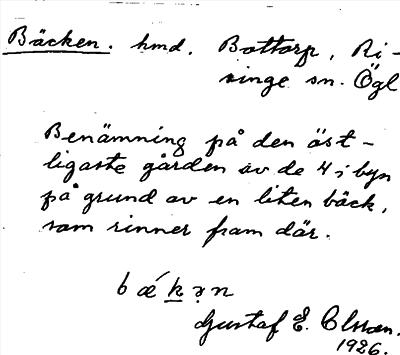 Bäcken. hmd. Bottorp, Ri-
singe sn. Ögl
Benämning på den öst-
ligaste gården av de 4 i byn
på grund av en liten bäck,
som rinner fram där.
b ǽ k ə n
Gustaf E. Olsson.
1926.